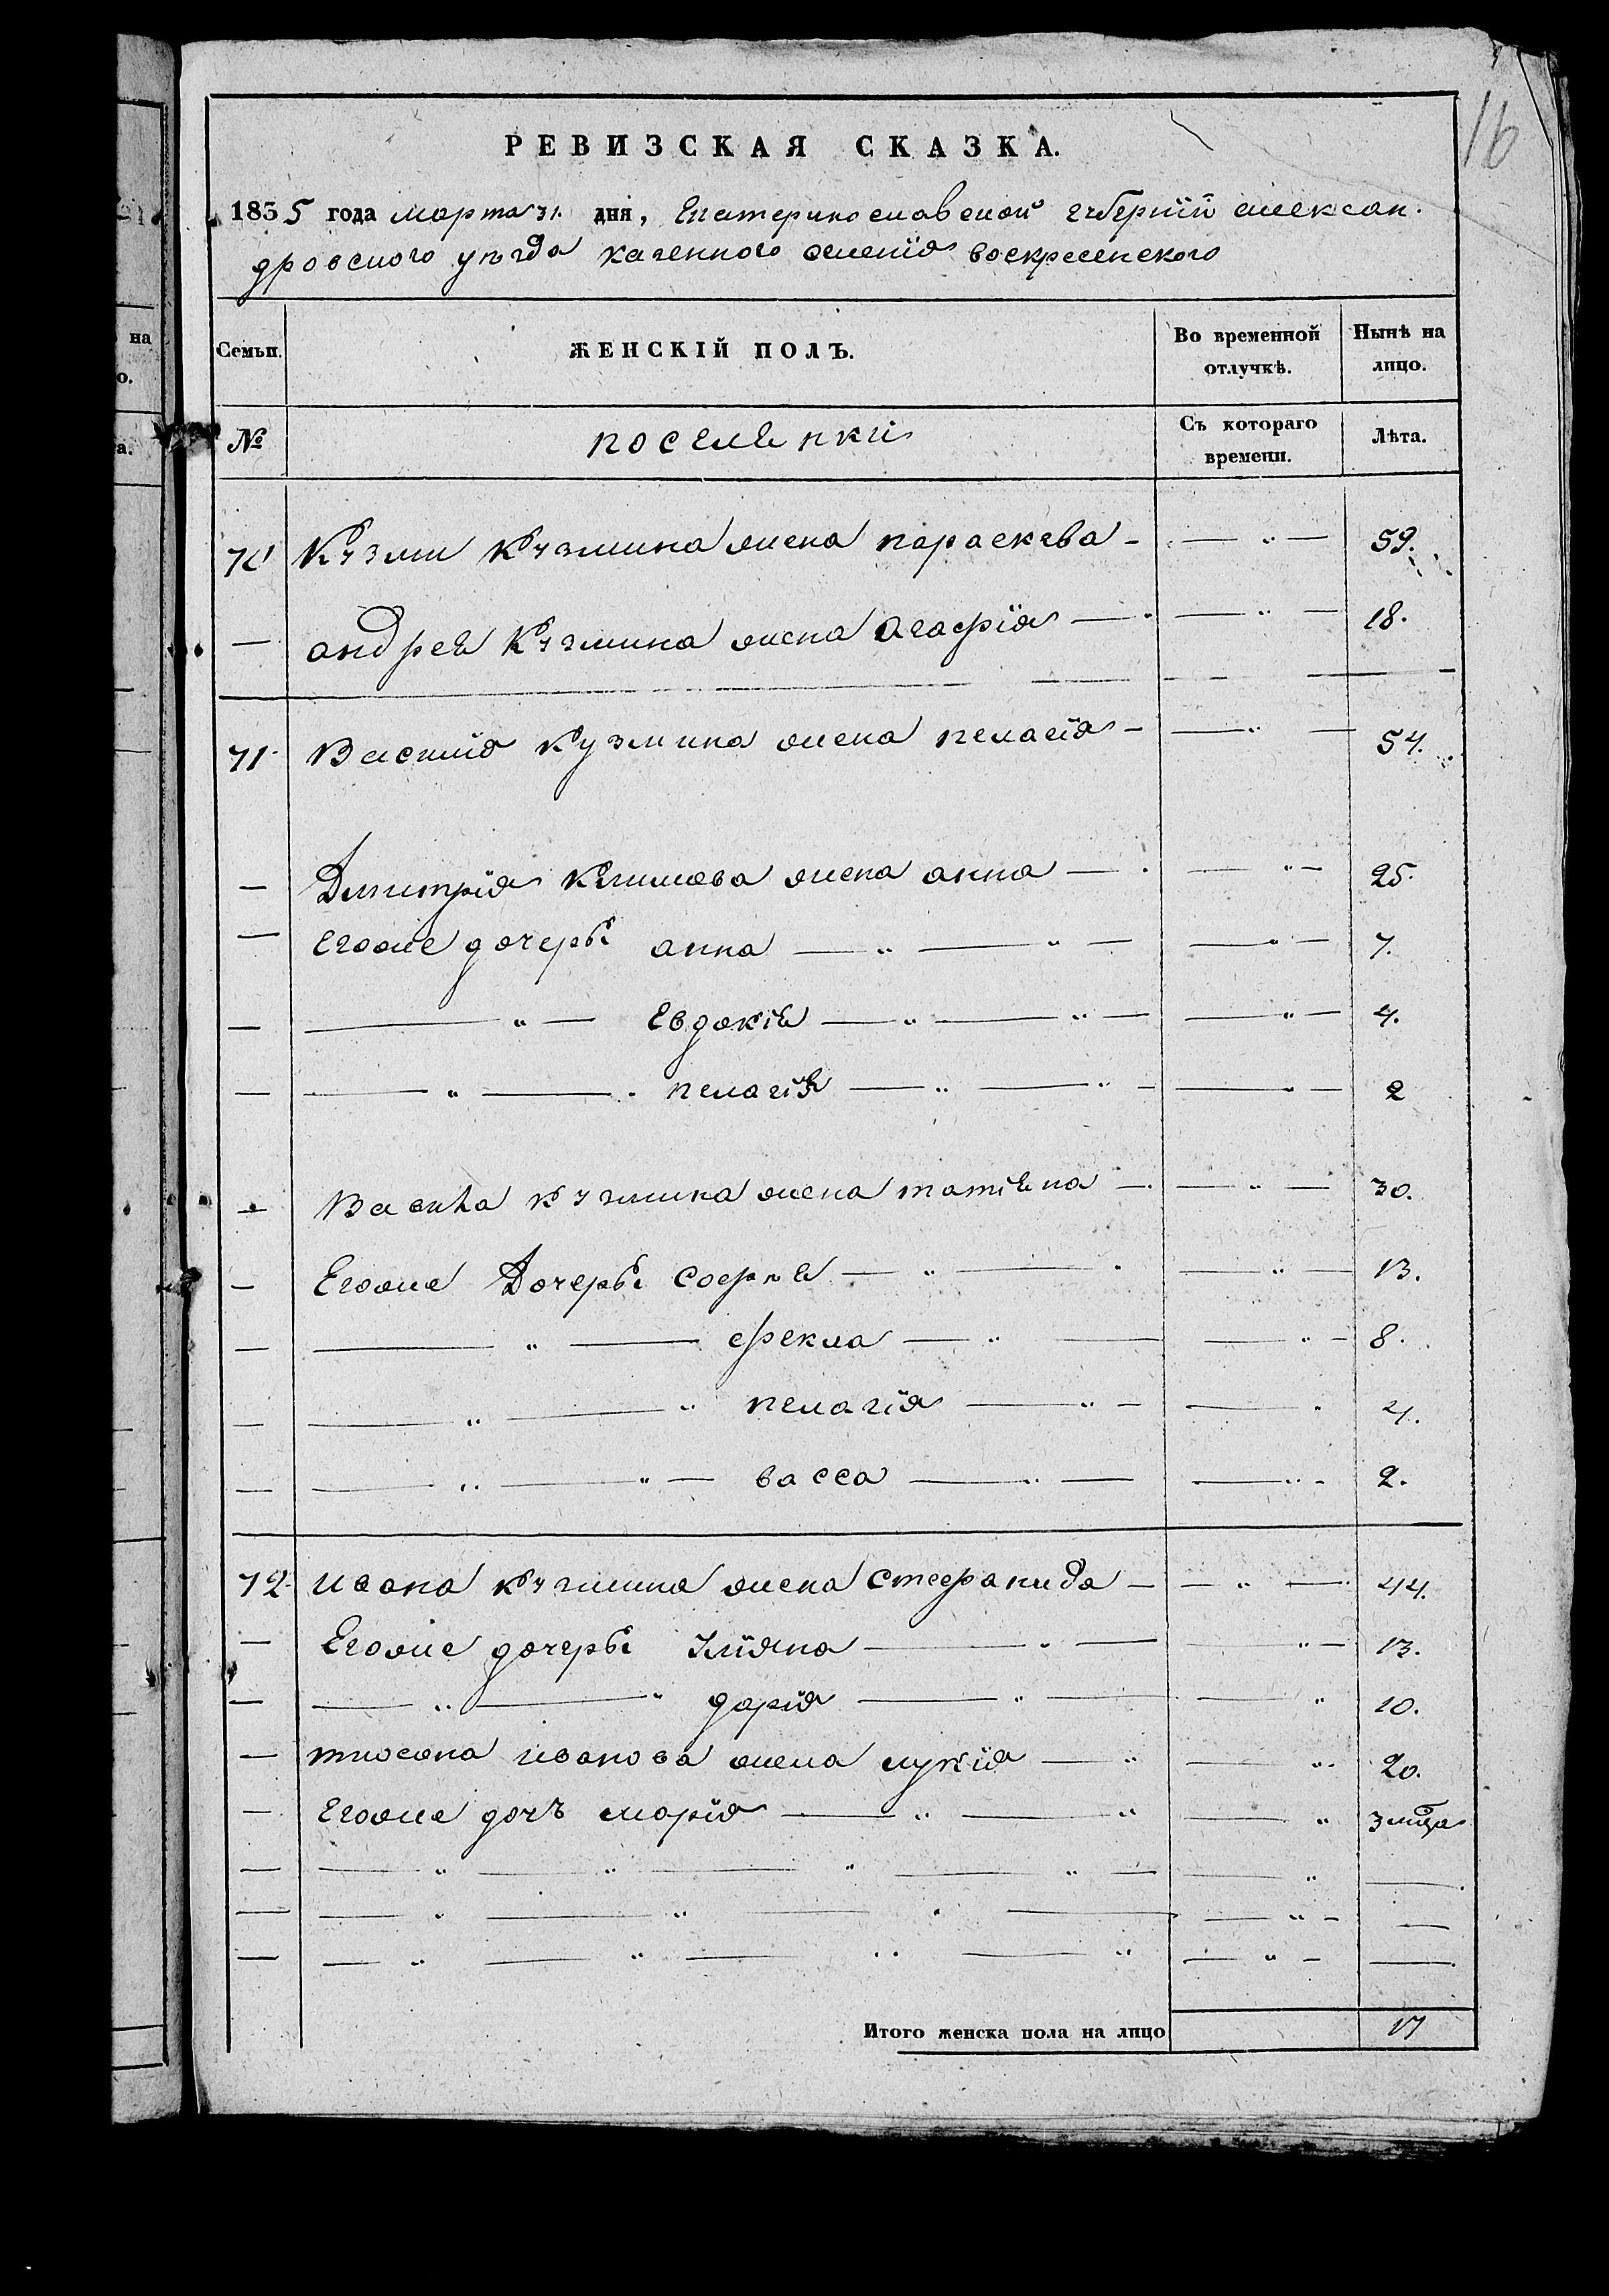 16
РЕВИЗСКАЯ СКАЗКА.
1835 года марта 31. дня, Екатеринославской губернїй алексан.
дровского уѣзда казенного селенїя воскресенского
Семьи. ЖЕНСКІЙ ПОЛЪ. Во временной отлучкѣ. Нынѣ на лицо.
№ поселенки Съ котораго времени. Лѣта.
70 Кузми Кузмина жена параскева 59.
— андрея Кузмина жена агафїя 18.
71 Василїя кузмина жена пелагїя 54.
— Дмитрїя Климова жена анна 25.
— Егоже дочеры анна 7.
— евдокія 4.
— пелагїя 2
— Кузмина жена татіяна 30.
— Егоже Дочеры софия 13.
— фекла 8.
— пелагїя 4.
— васса 2.
72 ивана кузмина жена стефанида 44.
— Егоже дочеры улїяна 13.
— дарїя 10.
— иванова жена лукїя 20.
— Егоже дочъ марїя 3 мца
Итого женска пола на лицо 17
на
о.
а.